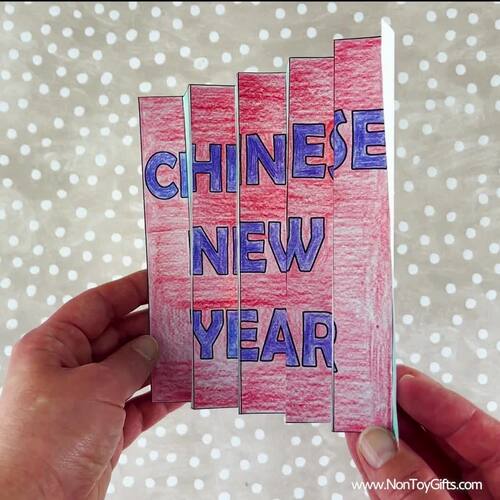 CHINESE
NEW
YEAR
www.NonToyGifts.com